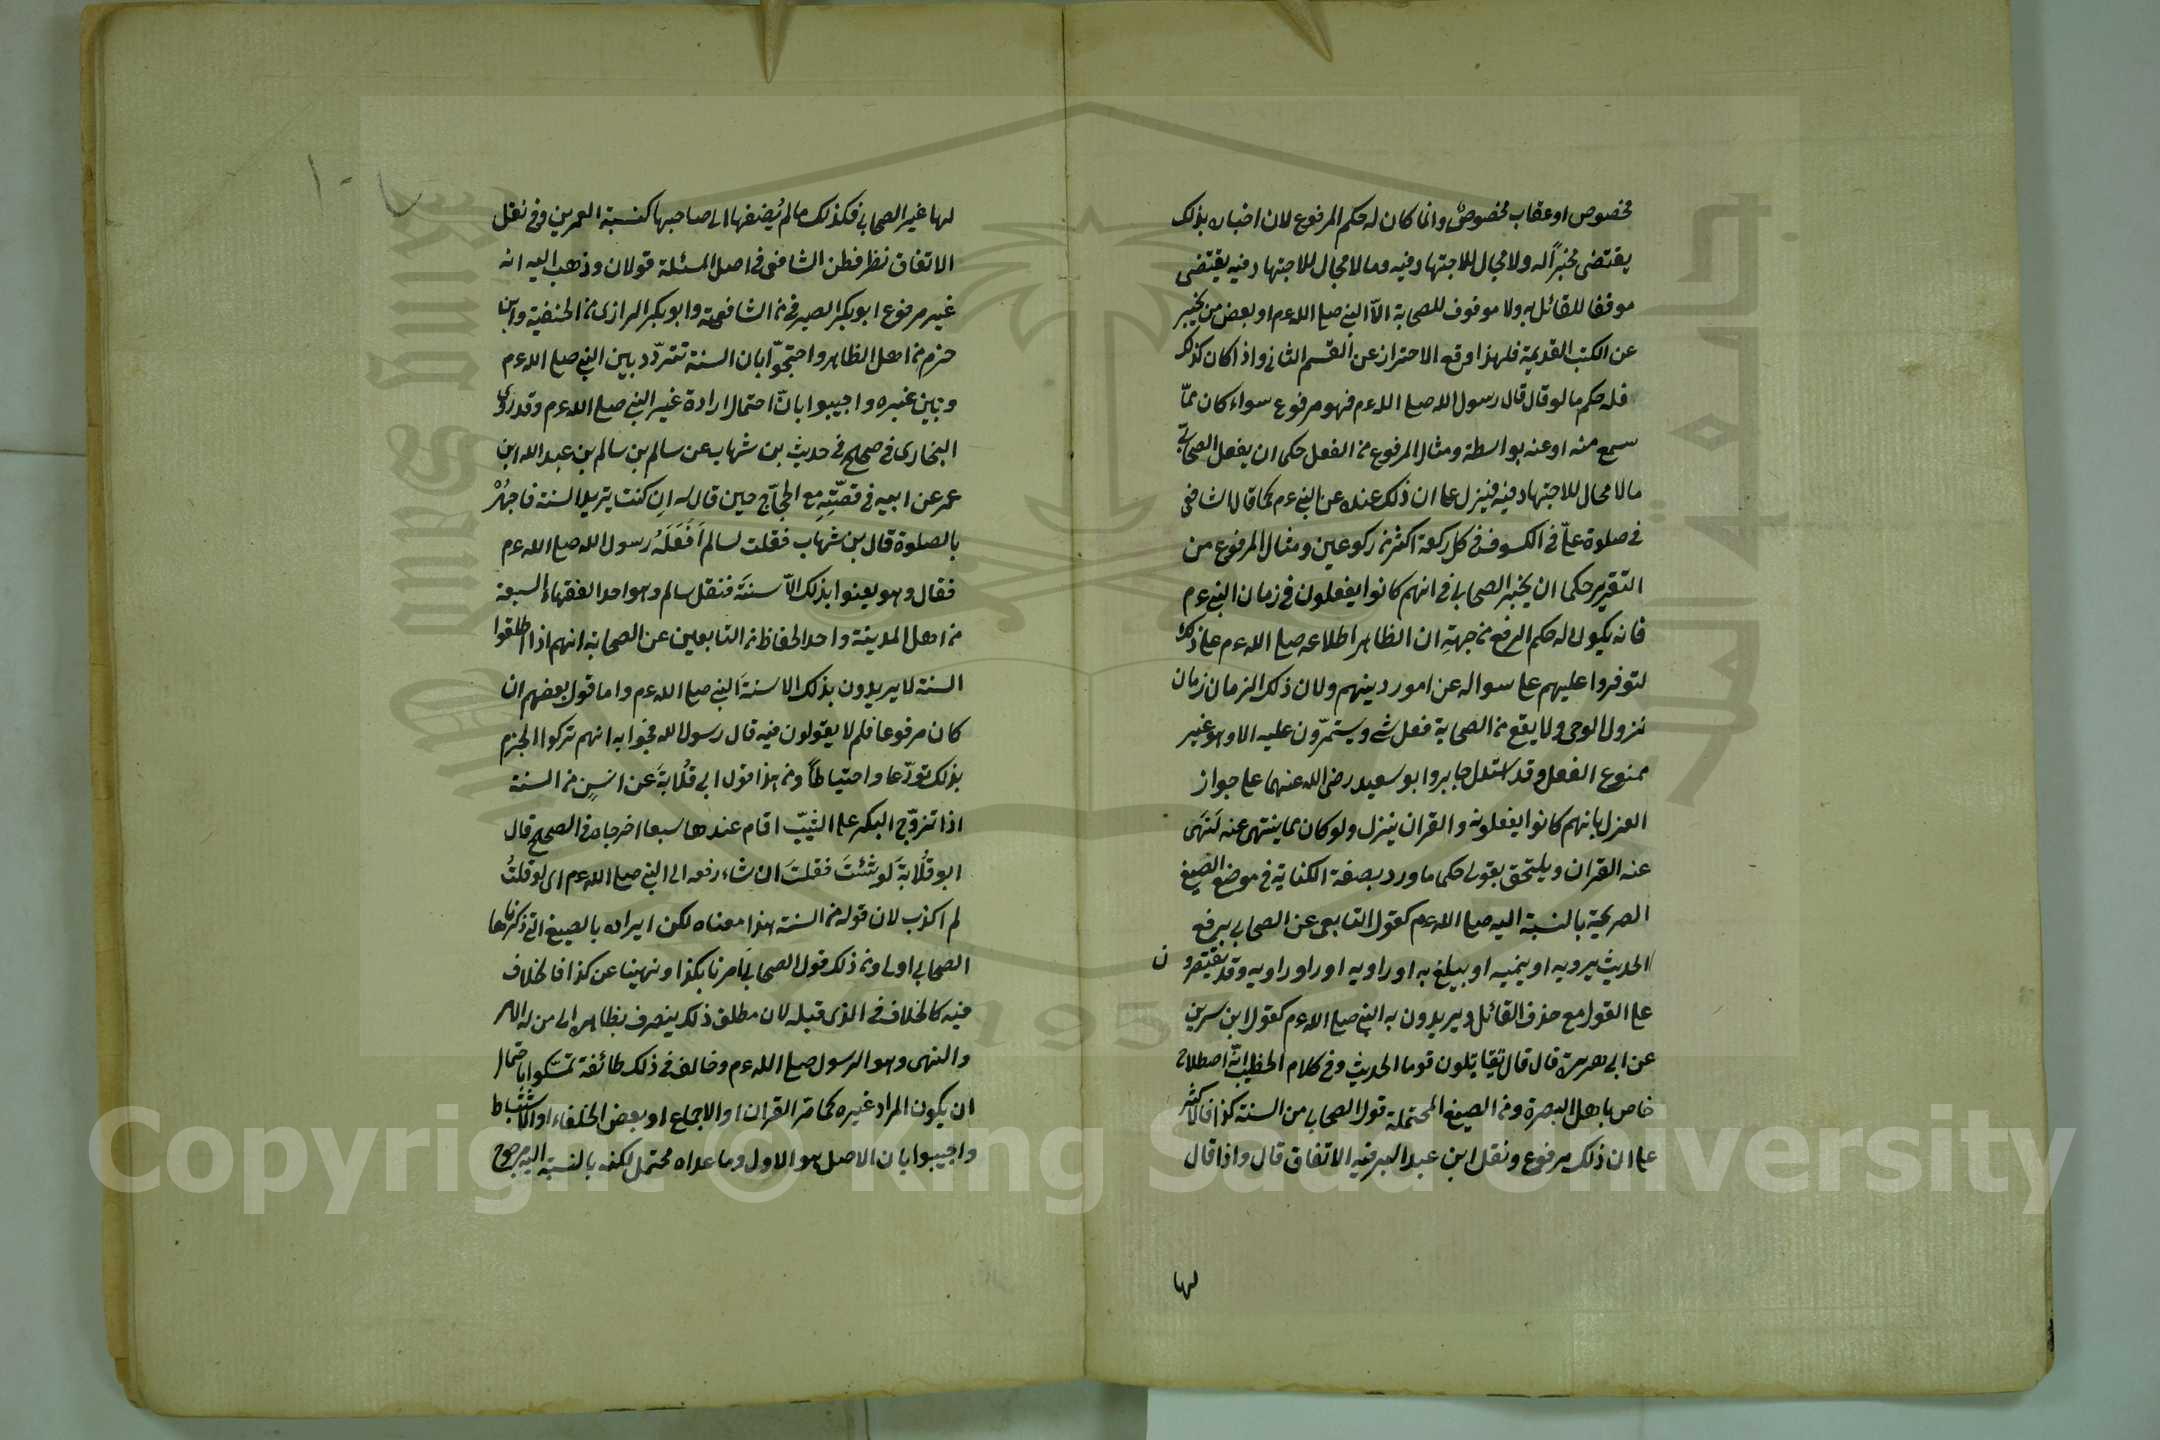 مخصوص او عقاب مخصوص وانما كان له حكم المرفوع لان اخباره بذلك
يقتضى مخبرًا له ولا مجال للاجتهاد فيه وما لا مجال للاجتهاد فيه يقتضى
موقفا للقائل به ولا موقوف للصحابة الّا النبي صلى الله ءم او بعض من يخبر
عن الكتب القديمة فلهذا وقع الاحتراز عن القسم الثانى واذا كان كذلك
فله حكم ما لو قال قال رسول الله صلى الله ءم فهو مرفوع سواء كان ممّا
سمع منه او عنه بواسطة ومثال المرفوع من الفعل حكى ان يفعل الصحابيّ
ما لا مجال للاجتهاد فيه فينزل على ان ذلك عنده عن النبي ءم كما قال الشافعى
فى صلوة علىّ فى الكسوف فى كل ركعة اكثر من ركوعين ومثال المرفوع من
التقرير حكما ان يخبر الصحابى فى انهم كانوا يفعلون فى زمان النبي ءم
فانه يكون له حكم الرفع من جهة ان الظاهر اطلاعه صلى الله ءم على ذلك
لتوفروا عليهم على سواله عن امور دينهم ولان ذلك الزمان زمان
نزول الوحى ولا يقع من الصحابة فعل شئ ويستمرّون عليه الا وهو غير
ممنوع الفعل وقد استدل جابر وابو سعيد رضى الله عنهما على جواز
العزل بانهم كانوا يفعلونه والقران ينزل ولو كان مما ينتهى عنه لَنَهَى
عنه القران ويلتحق بقولى حكما ما ورد بصفة الكناية فى موضع الصيغ
الصريحة بالنسبة اليه صلى الله ءم كقول التابعى عن الصحابى يرفع
الحديث يرويه او ينميه او يبلغ به او راويه او راو راويه وقد يقتصرون
على القول مع حذف القائل ويريدون به النبي صلى الله ءم كقول ابن سرين
عن ابى هريرة قال قال تقاتلون قوما الحديث وفى كلام الخطيب انّه اصطلاح
خاص باهل البصرة ومن الصيغ المحتملة قول الصحابى من السنة كذا فالاكثر
على ان ذلك مرفوع ونقل ابن عبد البر فيه الاتفاق قال واذا قال
لها
لها غير الصحابى فكذلك ما لم يُضفها الى صاحبها كنسبة العمرين وفى نقل
الاتفاق نظر فطن الشافعى فى اصل المسئلة قولان وذهب اليه انه
غير مرفوع ابو بكر الصيرفى من الشافعية وابو بكر الرازى من الحنفية وابن
حزم من اهل الظاهر واحتجّوا بان السنة تتردّد بين النبي صلى الله ءم
وبين غيره واجيبوا بانّ احتمال ارادة غير النبي صلى الله ءم وقد روى
البخارى فى صحيحه فى حديث بن شهاب عن سالم بن سالم بن عبد الله ابن
عمر عن ابيه فى قصّتِهِ مع الحجّاج حين قال له اِن كنت يتريد السنة فاجهُرْ
بالصلوة قال بن شهاب فقلت لسالم اَفَعَلَهُ رسول الله صلى الله ءم
فقال وهو يعنوا بذلك الّا سنتَه فنقل سالم وهو احد الفقهاء السبعة
من اهل المدينة واحد الحفاظ من التابعين عن الصحابة انهم اذا اطلقوا
السنة لا يريدون بذلك الا سنةَ النبي صلى الله ءم واما قول بعضهم ان
كان مرفوعا فلم لا يقولون فيه قال رسول الله فجوابه انهم تركوا الجزم
بذلك تورّعا واحتياطاً ومن هذا قول ابى قلابَة عن انسٍ من السنة
اذا تزوّج البكر على الثيّب اقام عندها سبعا اخرجاه فى الصحيح قال
ابو قلابَة لو شئتَ فقلتَ ان شاء رفعه الى النبي صلى الله ءم اى لو قلتُ
لم اكذب لان قوله من السنة هذا معناه لكن ايراده بالصيغ التى ذكرناها
الصحابى اولى ومن ذلك قول الصحابى اَمرنا بكذا ونهينا عن كذا فالخلاف
فيه كالخلاف فى الذى قبله لان مطلق ذلك ينصرف بظاهره الى من له الامر
والنهى وهو الرسول صلى الله ءم وخالف فى ذلك طائفة تمسّكوا باحتمال
ان يكون المراد غيره كامر القران او الاجماع او بعض الخلفاء او الاستنباط
واجيبوا بان الاصل هو الاول وما عداه محتمل لكنه بالنسبة اليه مرجوح
Copyright © King Saud University
1957